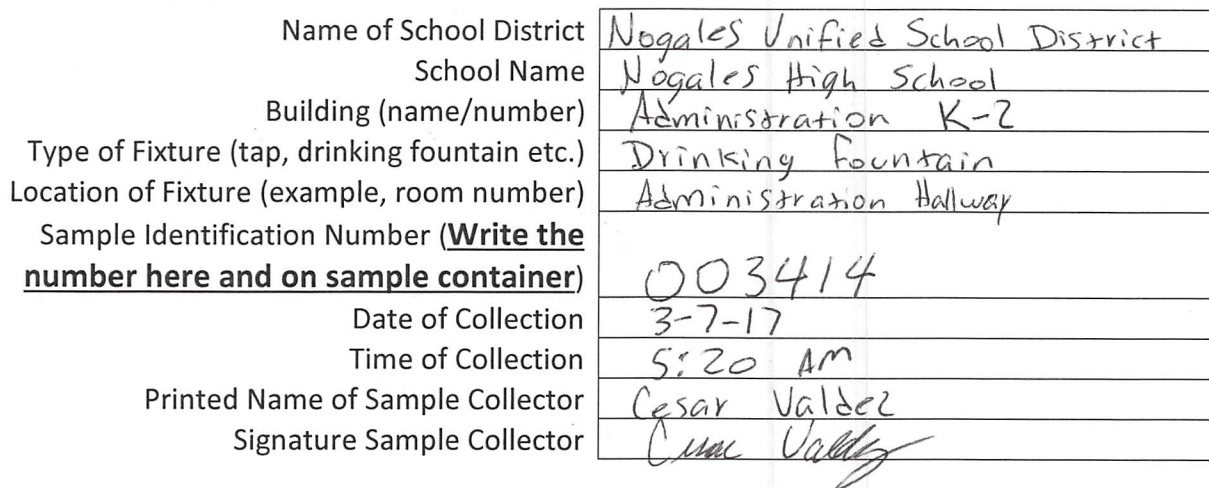 Name of School District Nogales Unified School District
School Name Nogales High School
Building (name/number) Administration K-2
Type of Fixture (tap, drinking fountain etc.) Drinking Fountain
Location of Fixture (example, room number) Administration Hallway
Sample Identification Number (Write the
number here and on sample container) 003414
Date of Collection 3-7-17
Time of Collection 5:20 AM
Printed Name of Sample Collector Cesar Valdez
Signature Sample Collector Cesar Valdez